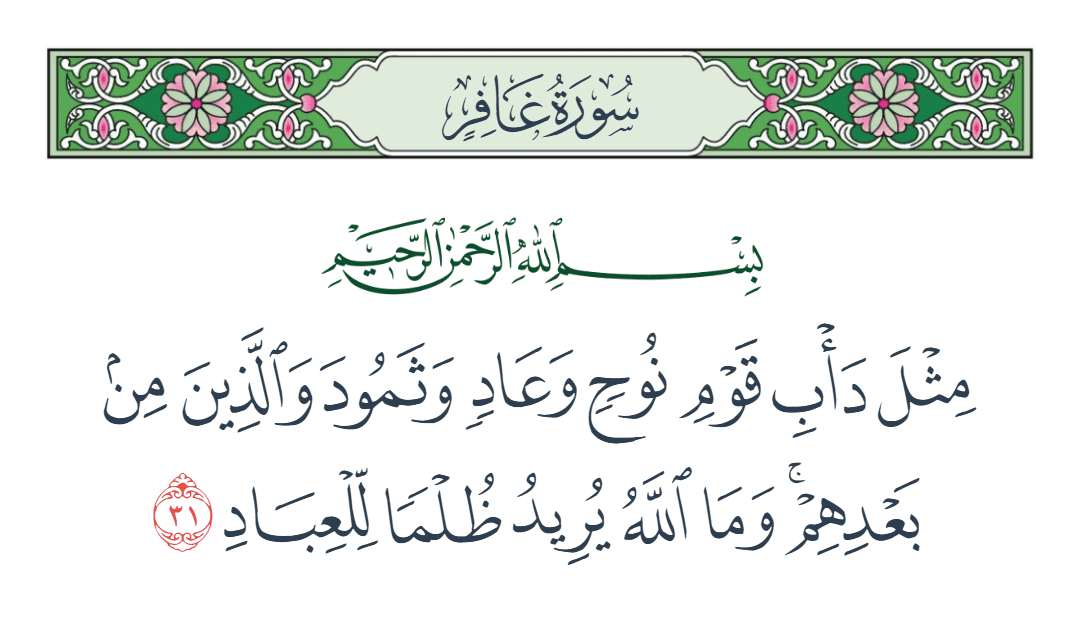 سُورَةُ غَافِرٍ
بِسْمِ ٱللَّهِ ٱلرَّحْمَٰنِ ٱلرَّحِيمِ
مِثْلَ دَأْبِ قَوْمِ نُوحٍ وَعَادٍ وَثَمُودَ وَٱلَّذِينَ مِنۢ
بَعْدِهِمْ ۚ وَمَا ٱللَّهُ يُرِيدُ ظُلْمًا لِّلْعِبَادِ ٣١